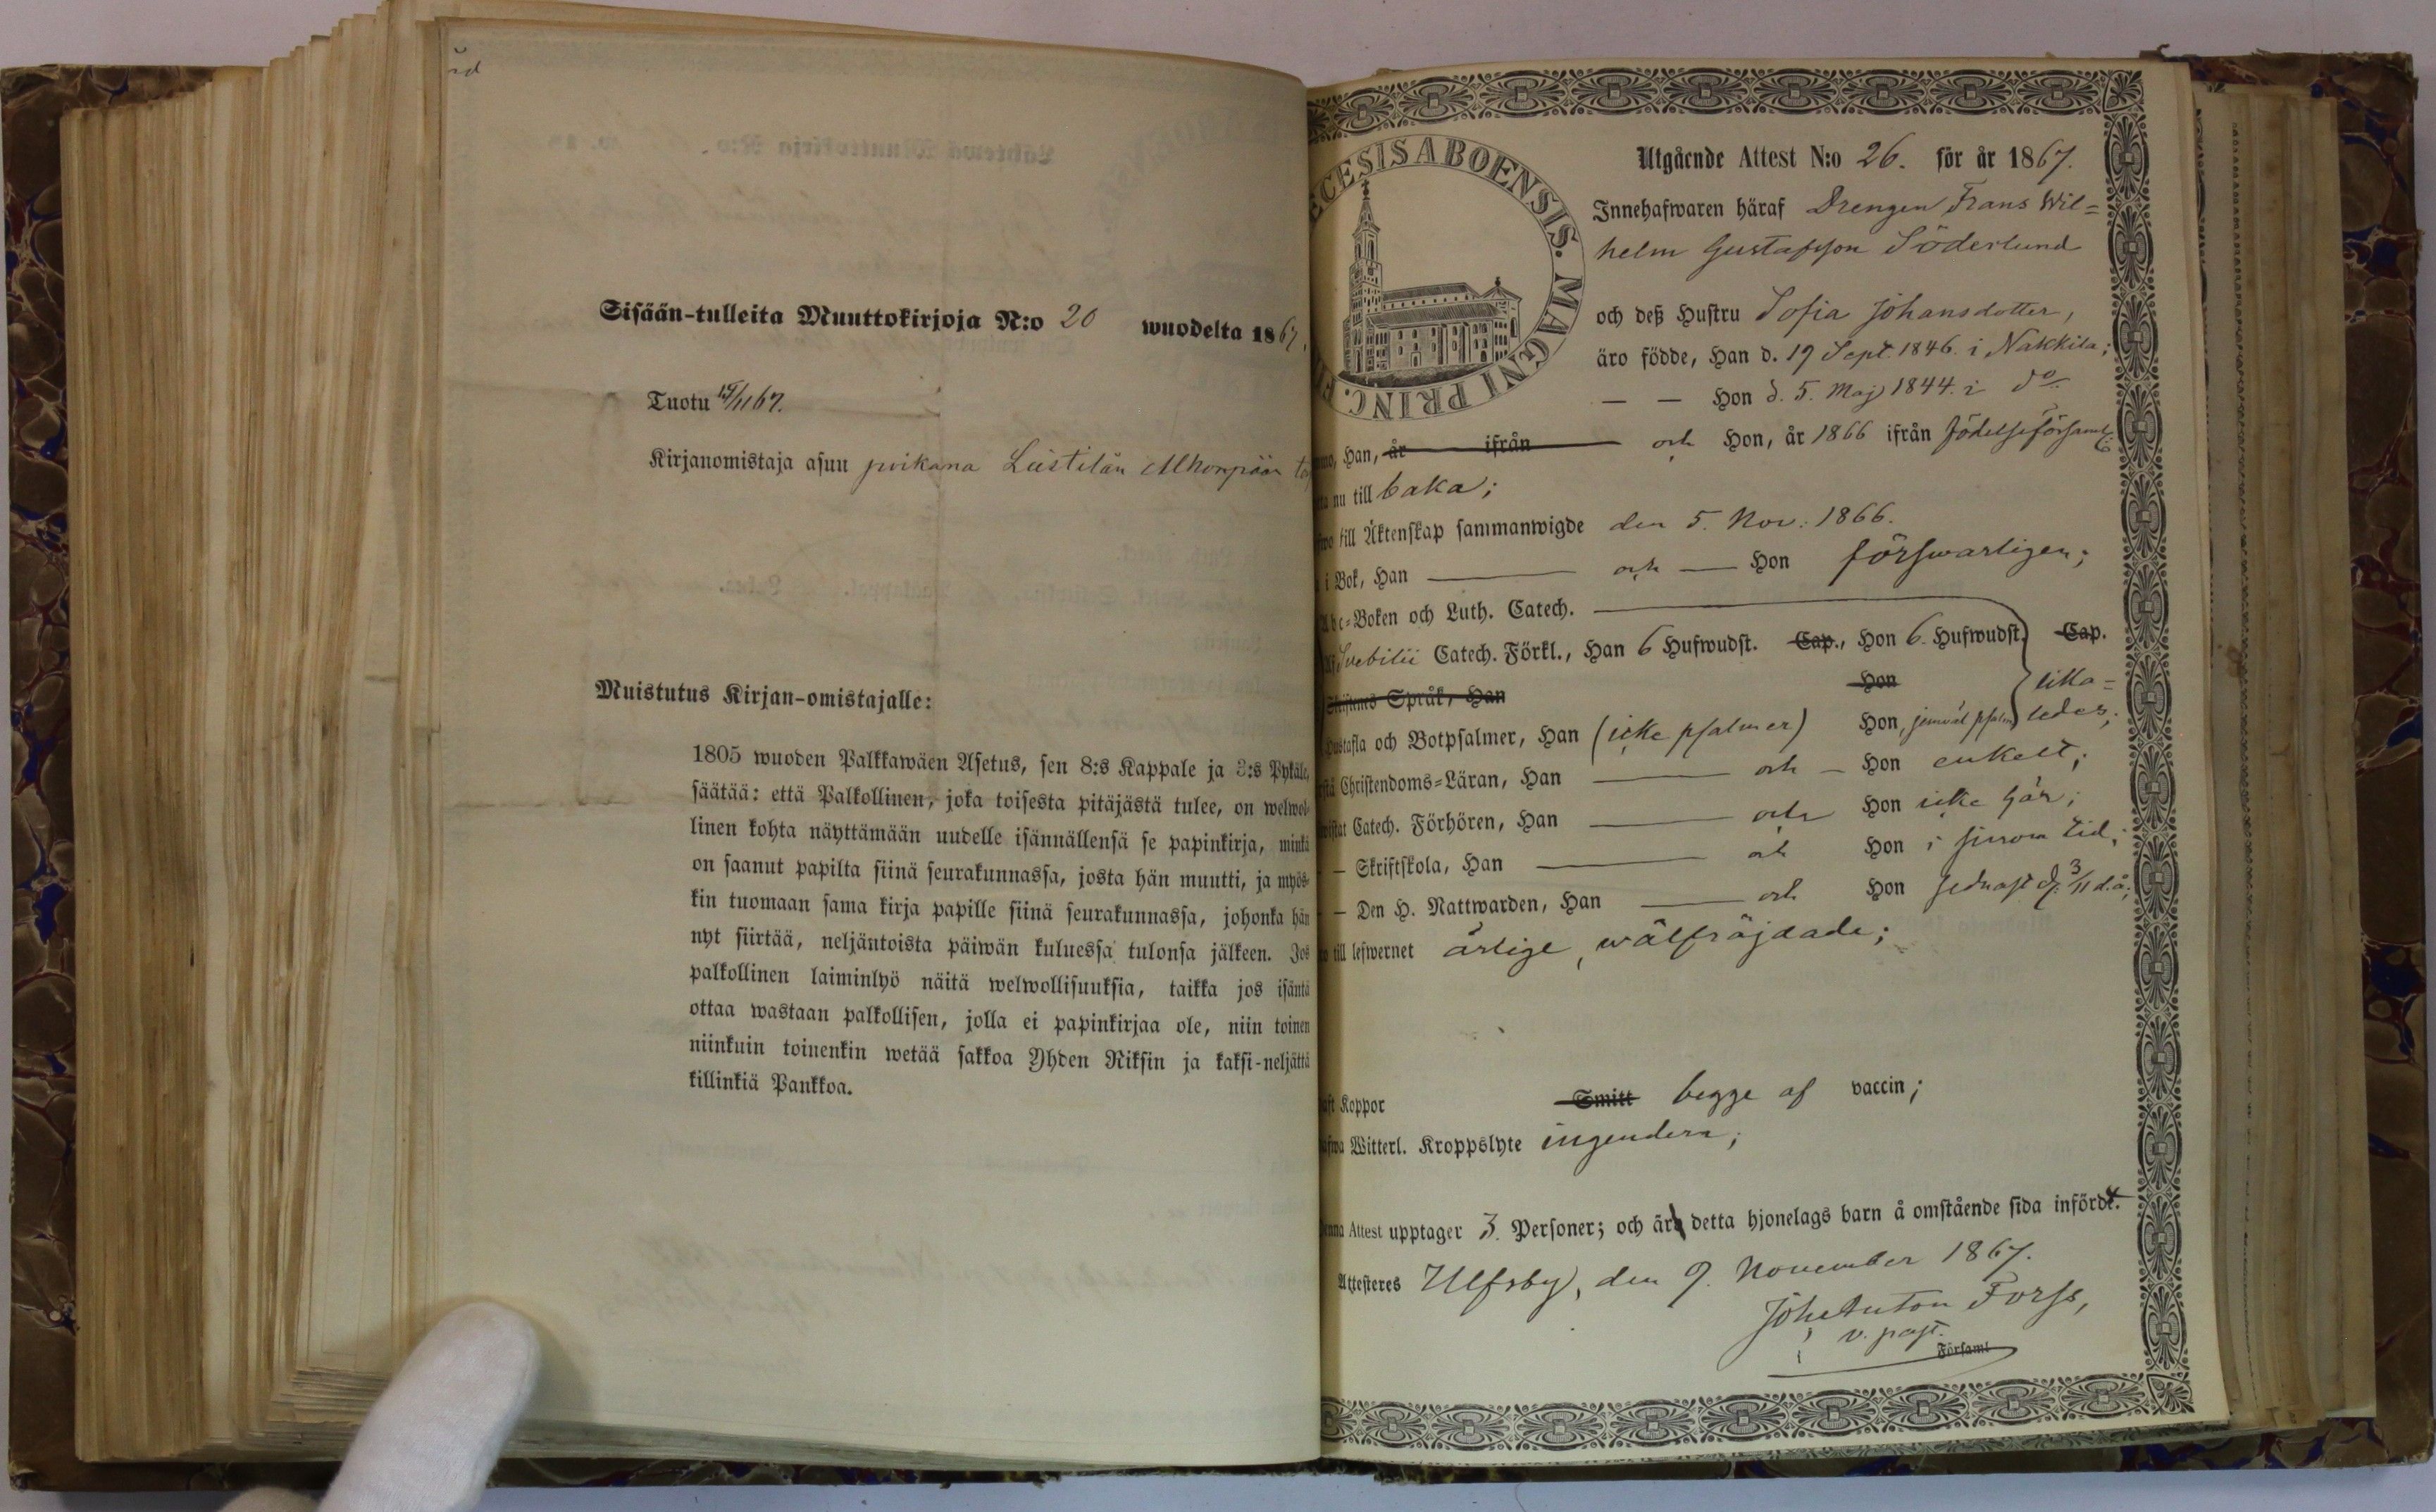 Sisään-tulleita Muuttokirjoja N:o 20 wuodelta 1867.
Tuotu 15/11 67.
Kirjanomistaja asuu poikana Leistilän
Muistutus Kirjan-omistajalle:
1805 wuoden Palkkawäen Asetus, sen 8:s Kappale ja 3:s Pykäle,
säätää: että Palkollinen, joka toisesta pitäjästä tulee, on welwol-
linen kohta näyttämään uudelle isännällensä se papinkirja, minkä
on saanut papilta siinä seurakunnassa, josta hän muutti, ja myös-
kin tuomaan sama kirja papille siinä seurakunnassa, johonka hän
nyt siirtää, neljäntoista päiwän kuluessa tulonsa jälkeen. Jos
palkollinen laiminlyö näitä welwollisuuksia, taikka jos isäntä
ottaa wastaan palkollisen, jolla ei papinkirjaa ole, niin toinen
niinkuin toinenkin wetää sakkoa Yhden Riksin ja kaksi-neljättä
killinkiä Pankkoa.
ECESIS ABOENSIS. MAGNI PRINC. FI
Utgående Attest N:o 26. för år 1867.
Innehafwaren häraf Drengen Frans Wil=
helm Gustafsson Söderlund
och deß Hustru Sofia Johansdotter,
äro födde, Han d. 19 Sept. 1846. i Nakkila;
— — Hon d. 5. Maj 1844. i do
Han, år ifrån och Hon, år 1866 ifrån födelseförsaml:
nu till baka;
till Äktenskap sammanwigde den 5. Nov. 1866.
i Bok, Han — och — Hon förswarligen;
Abc=Boken och Luth. Catech.
Af Svebilii Catech. Förkl., Han 6 Hufwudst. Cap., Hon 6. Hufwudst. Cap.
Språk, Han Hon lika=
Hustafla och Botpsalmer, Han (icke psalmer) Hon, jemväl psalm ledes;
Christendoms=Läran, Han — och — Hon enkelt;
Catech. Förhören, Han — och Hon icke här;
— Skriftskola, Han — och Hon i sinom tid;
— Den H. Nattwarden, Han — och Hon sednast d. 3/11 d.å;
till lefwernet ärlige, wälfräjdade;
Koppor Smitt begge af vaccin;
Witterl. Kroppslyte ingendera;
Denna Attest upptager 3. Personer; och är detta hjonelags barn å omstående sida infördt.
Attesteres Ulfsby, den 9. November 1867.
Joh. Anton Forss,
v. past.
Församl